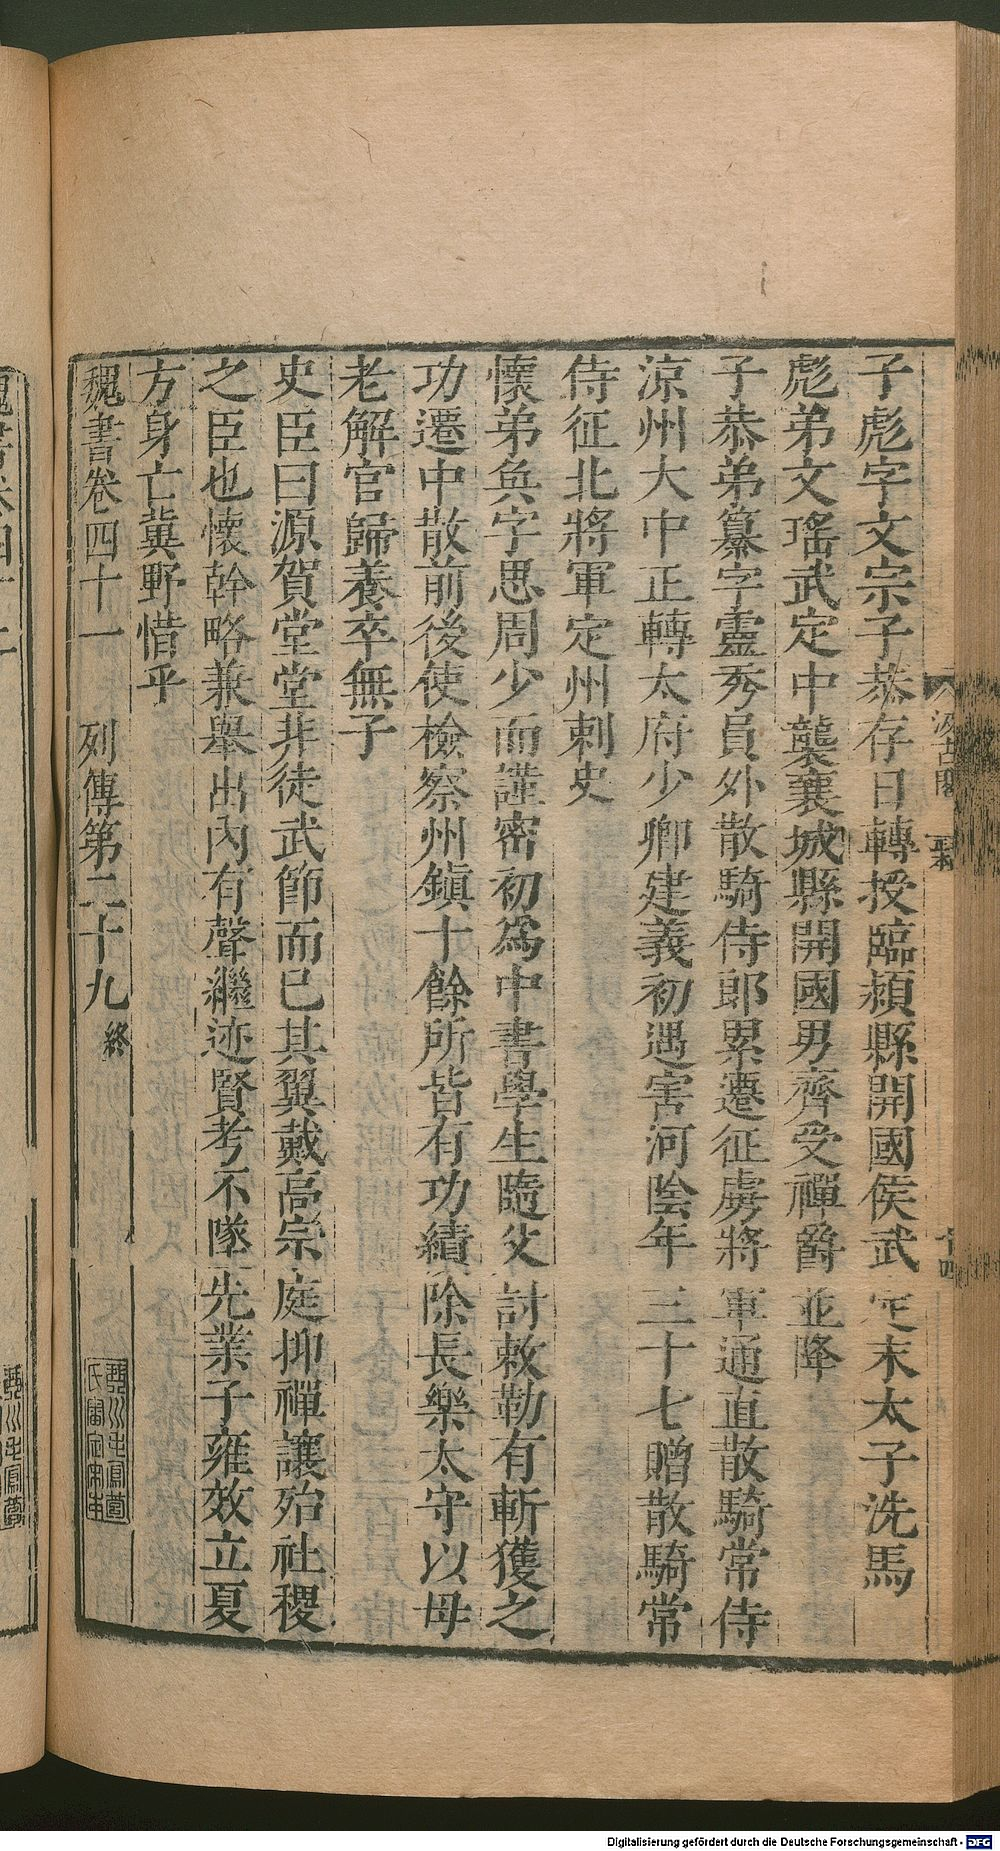 子彪字文宗子恭存日轉授臨潁縣開國侯武定末太子洗馬
彪弟文瑤武定中襲襄城縣開國男齊受禪爵並降
子恭弟纂字靈秀員外散騎侍郎累遷征虜將軍通直散騎常侍
涼州大中正轉太府少卿建義初遇害河陰年三十七贈散騎常
侍征北將軍定州刺史
懷弟奐字思周少而謹密初爲中書學生隨父討敕勒有斬獲之
功遷中散前後使檢察州鎮十餘所皆有功績除長樂太守以母
老解官歸養卒無子
史臣曰源賀堂堂非徒武節而已其翼戴高宗庭抑禪讓殆社稷
之臣也懷幹略兼舉出內有聲繼迹賢考不墜先業子雍效立夏
方身亡冀野惜乎
魏書卷四十一 列傳第二十九 終
汲古閣
十四
Digitalisierung gefördert durch die Deutsche Forschungsgemeinschaft - DFG